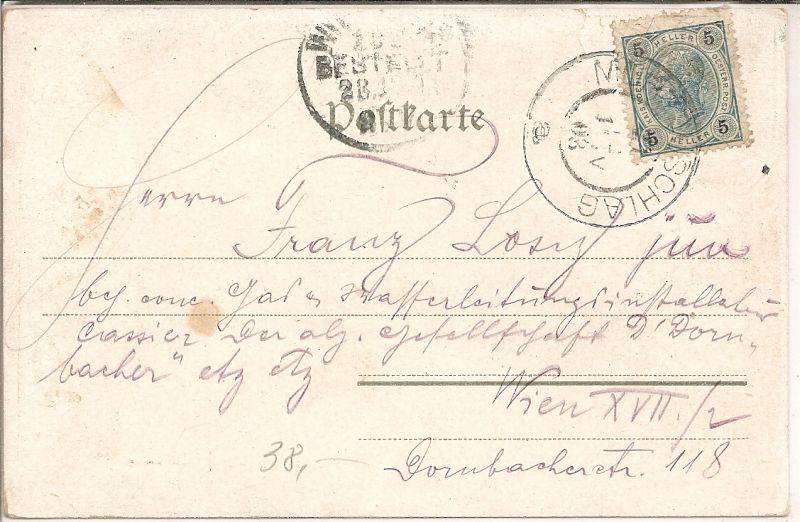 BESTELLT
Postkarte
5 HELLER 5
5 HELLER 5
SCHLAG
Herrn
Franz Losy jun
beh. conc. Gas u Wasserleitungsinstallateur
Cassier der alg. Gesellschaft D'Dorn-
bacher" etz etz
Wien XVII./2
Dornbacherstr. 118
38,—